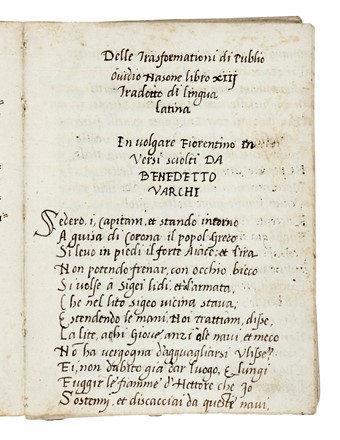 Delle Trasformationi di Publio
Ovidio Nasone libro XIII
Tradotto di lingua
latina
In volgare Fiorentino in
Versi sciolti DA
BENEDETTO
VARCHI
Sedero, i, capitani, et stando intorno
A guisa di corona il popol Greco
Si levò in piedi il forte Aiace, et l'ira
Non potendo frenar, con occhio bieco
Si volse à Sigei lidi, et l'armata,
Che nel lito sigeo vicina stava,
Estendendo le mani, Noi trattiam, disse,
La lite, ahi Giove, anzi alle navi, et meco
Nõ ha vergogna d'agguagliarsi Vlisse?
Ei, non dubitò già dar luogo, E lungi
Fuggir le fiamme d'Hettore che Io
Sostenni, et discacciai da queste navi.